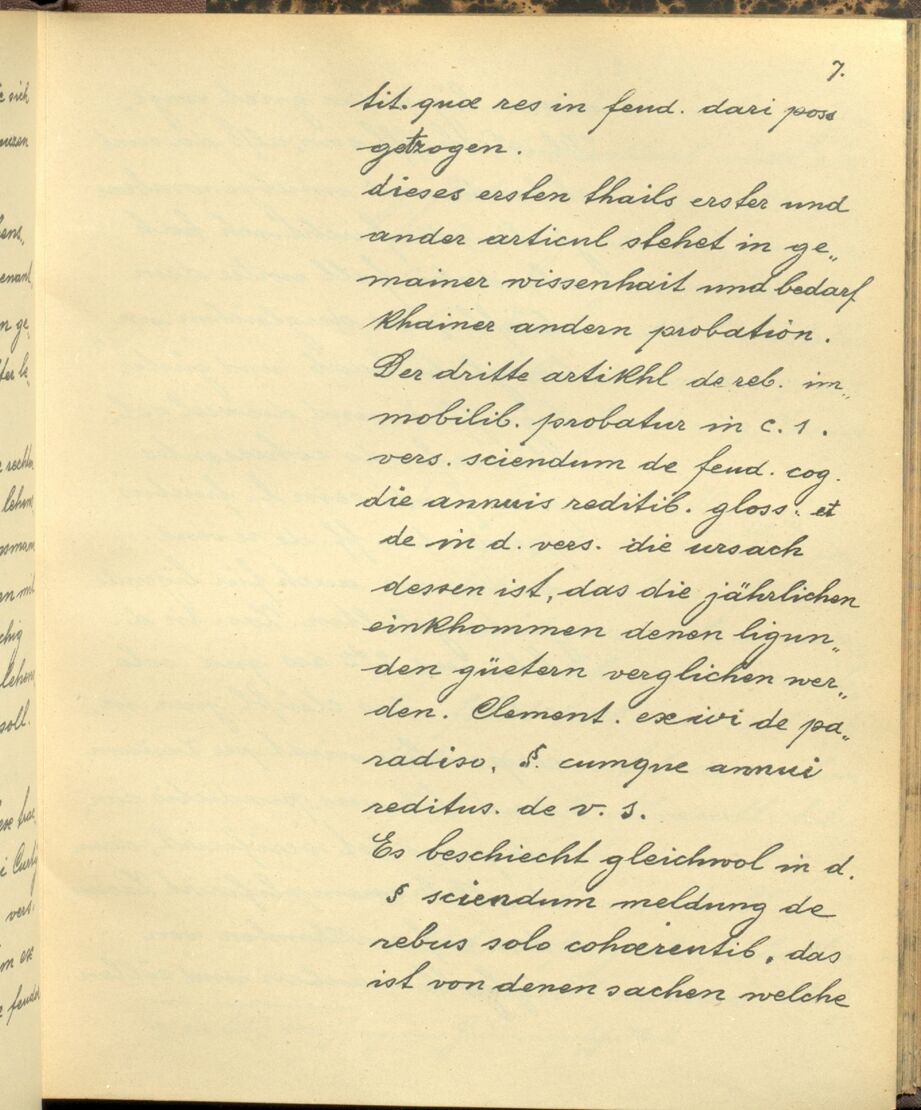 7.
tit. quæ res in feud. dari poss
getzogen.
dieses ersten thails erster und
ander articul stehet in ge„
mainer wissenhait und bedarf
khainer andern probation.
Der dritte artikhl de reb. im„
mobilib. probatur in c. 1.
vers. sciendum de feud. cog.
die annuis reditib. gloss. et
de in d. vers. die ursach
dessen ist, das die jährlichen
einkhommen denen ligun„
den güetern verglichen wer„
den. Clement. exivi de pa„
radiso, §. cumque annui
reditus. de v. s.
Es beschiecht gleichwol in d.
§ sciendum meldung de
rebus solo cohærentib, das
ist von denen sachen welche